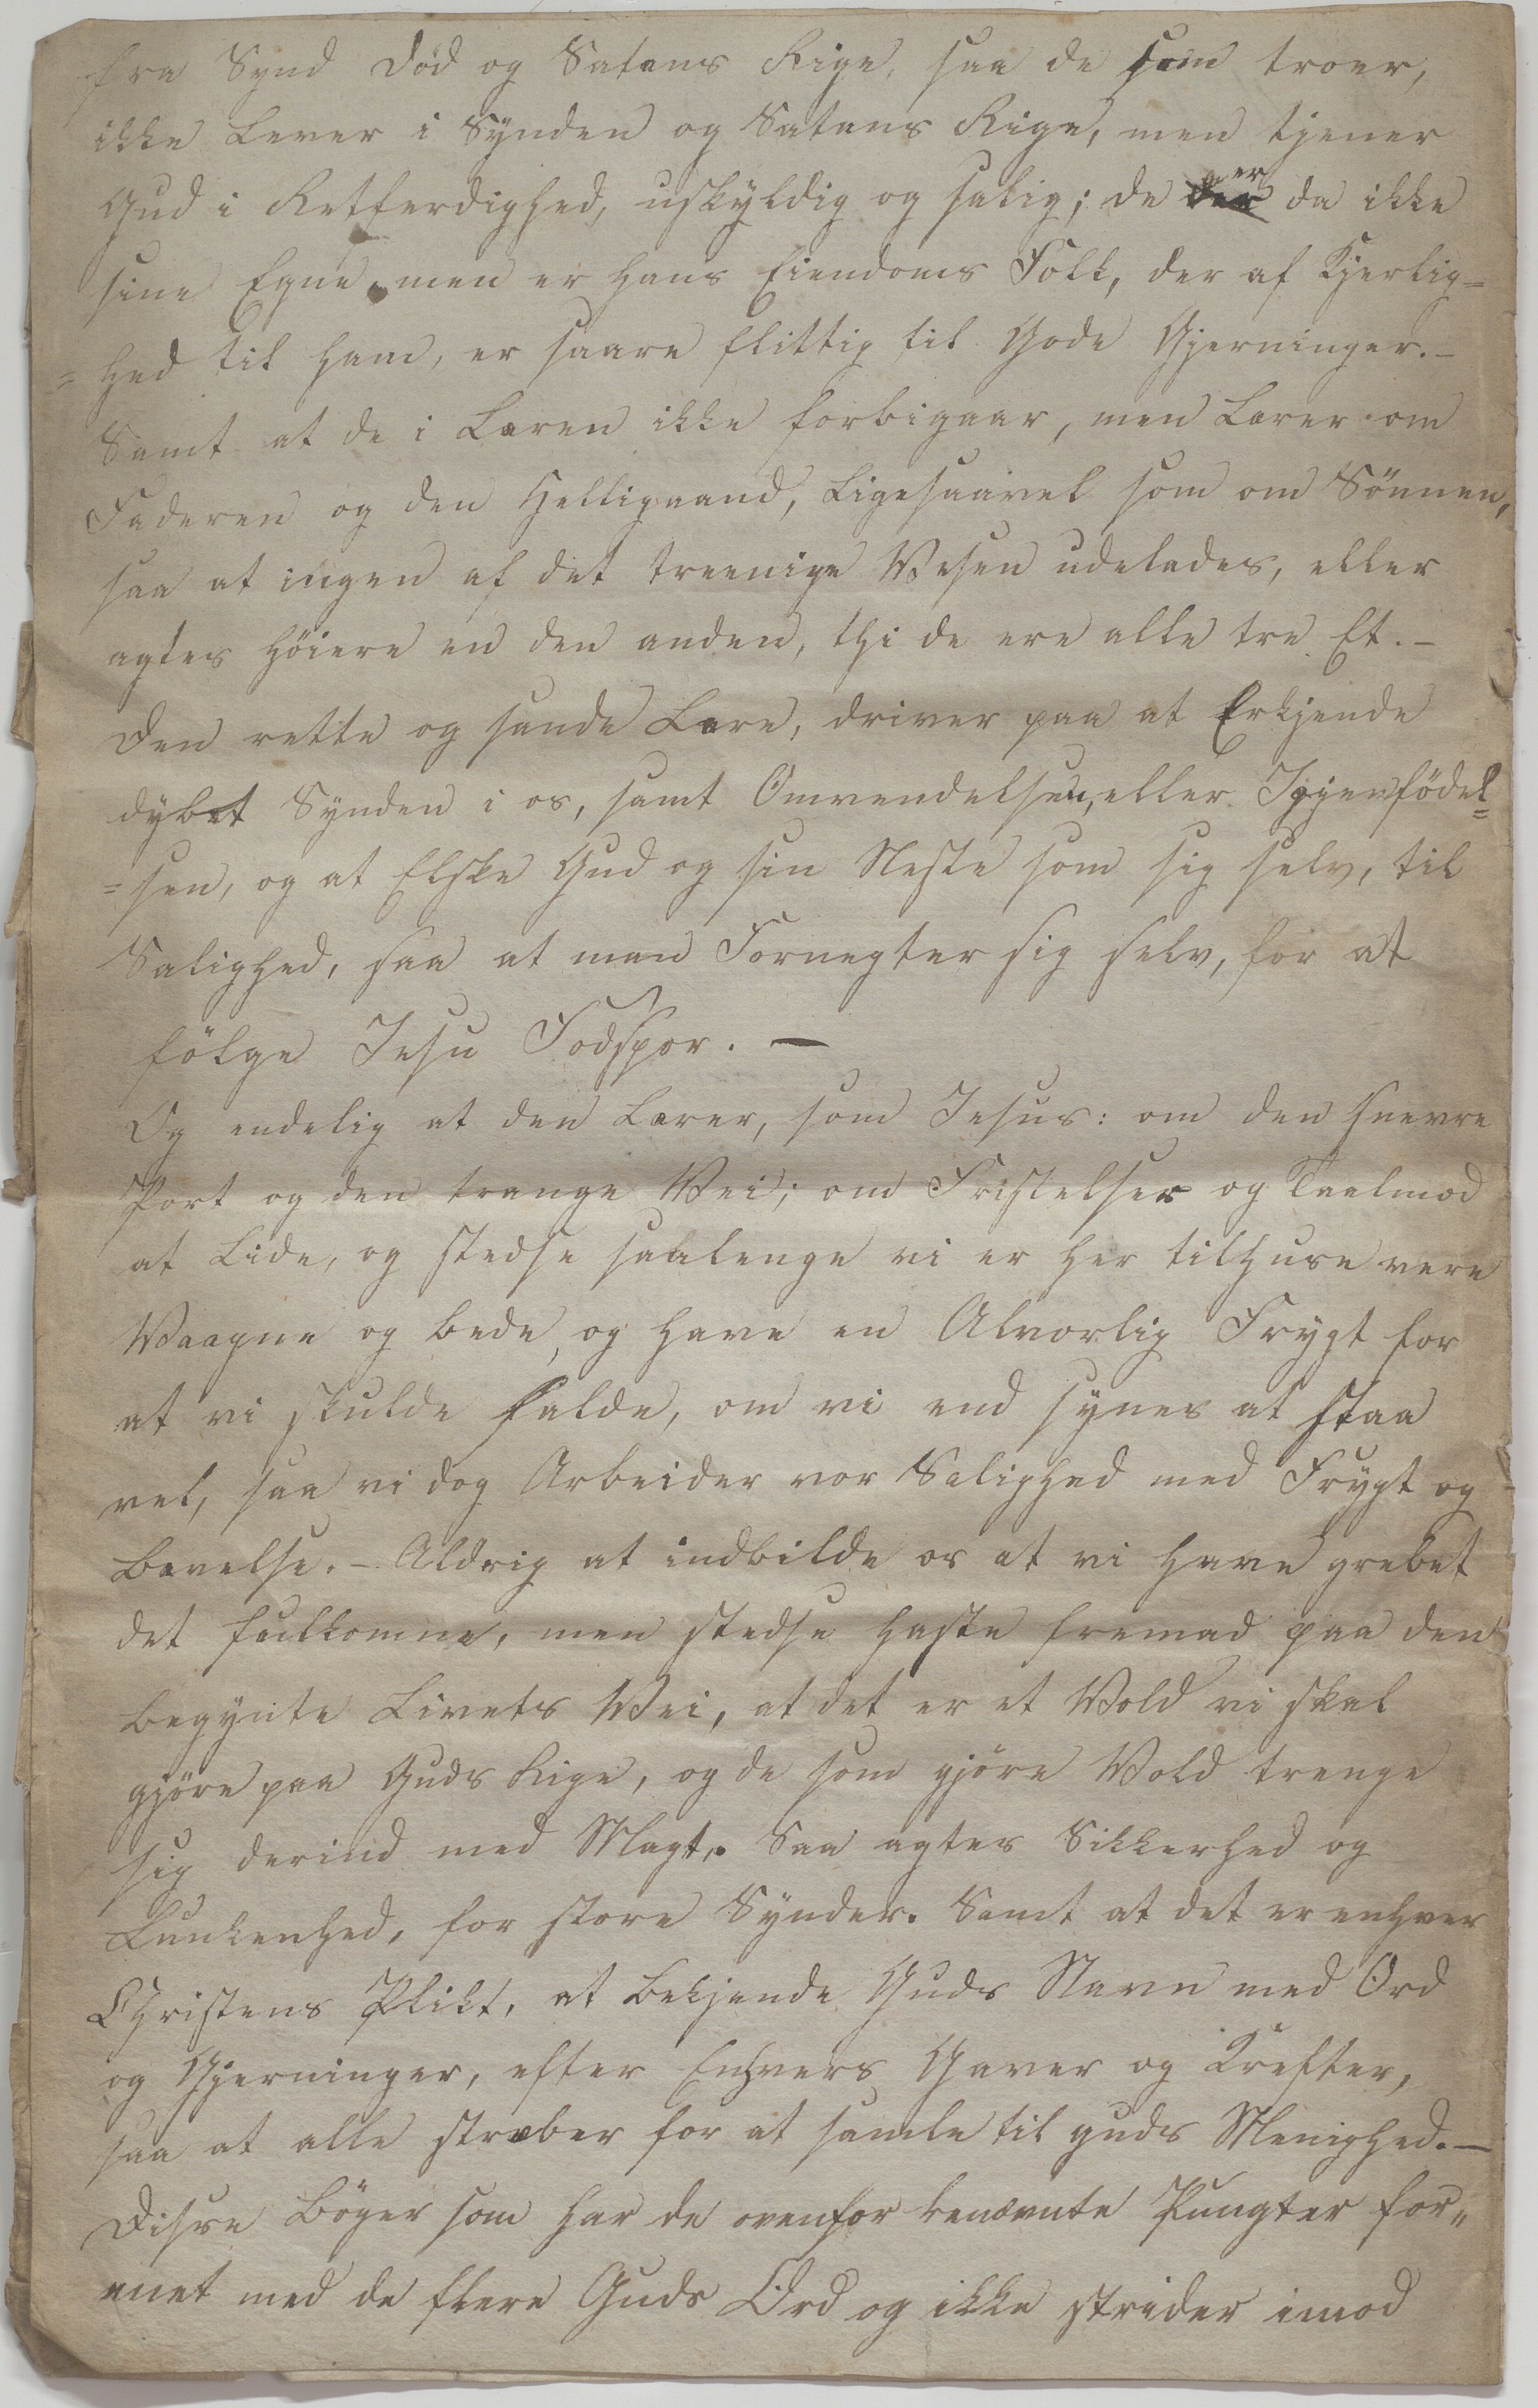 fra Synd Död og Satans Rige, saa de som troer,
ikke Lever i Synden og Satans Rige, men tjener
Gud i Retferdighed, uskyldig og salig; de er da ikke
sine Egne, men er hans Eiendoms Folk, der af Kjerlig=
=hed til ham, er saare flittig til Gode Gjerninger. –
Samt at de i Læren ikke forbigaar, men Lærer om
Faderen og den Helligaand, Ligesaavel som om Sönnen,
saa at ingen af det treenige Wesen udelades, eller
agtes höiere en den anden, thi de ere alle tre Et. –
Den rette og sande Lære, driver paa at Erkjende
dybet Synden i os, samt Omvendelsen, eller Igjenfödel=
=sen, og at Elske Gud og sin Neste som sig selv, til
Salighed, saa at man Fornegter sig selv, for at
fölge Jesu Fodspor. —
Og endelig at den Lærer, som Jesus: om den snevre
Port og den trange Wei; om Fristelser og Taalmod
at Lide, og stedse saalenge vi er her tilhuse være
Waagne og bede, og have en Alvorlig Frygt for
at vi skulde falde, om vi end synes at staa
vel, saa vi dog Arbeider vor Salighed med Frygt og
Bævelse. – Aldrig at indbilde os at vi have grebet
det fulkomne, men stedse haste fremad paa den
begynte Livets Wei, at det er et Wold vi skal
gjöre paa Guds Rige, og de som gjöre Wold trenge
sig derind med Magt. Saa agtes Sikkerhed og
Lunkenhed, for store Synder. Samt at det er enhver
Christens Plikt, at Bekjende Guds Navn med Ord
og Gjerninger, efter Enhvers Gaver og Krefter,
saa at alle stræber for at samle til guds Menighed. —
Disse Böger som har de ovenfor benævnte Pungter for„
enet med de flere Guds Ord og ikke strider imod